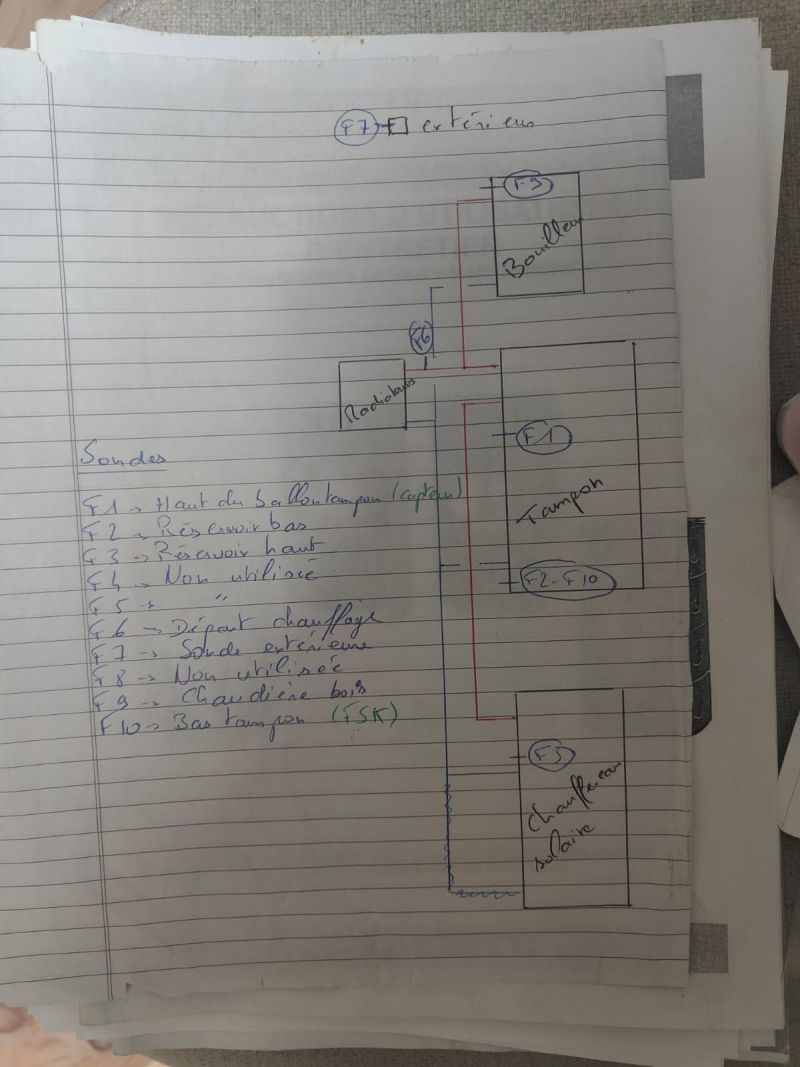 F7 extérieur
F9
Bouilleur
F6
Radiateurs
F1
Tampon
F2-F10
F3
Chauffe-eau
solaire
Sondes
F1 -> Haut du ballon tampon (capteur)
F2 -> Réservoir bas
F3 -> Réservoir haut
F4 -> Non utilisée
F5 -> "
F6 -> Départ chauffage
F7 -> Sonde extérieure
F8 -> Non utilisée
F9 -> Chaudière bois
F10 -> Bas tampon (FSK)